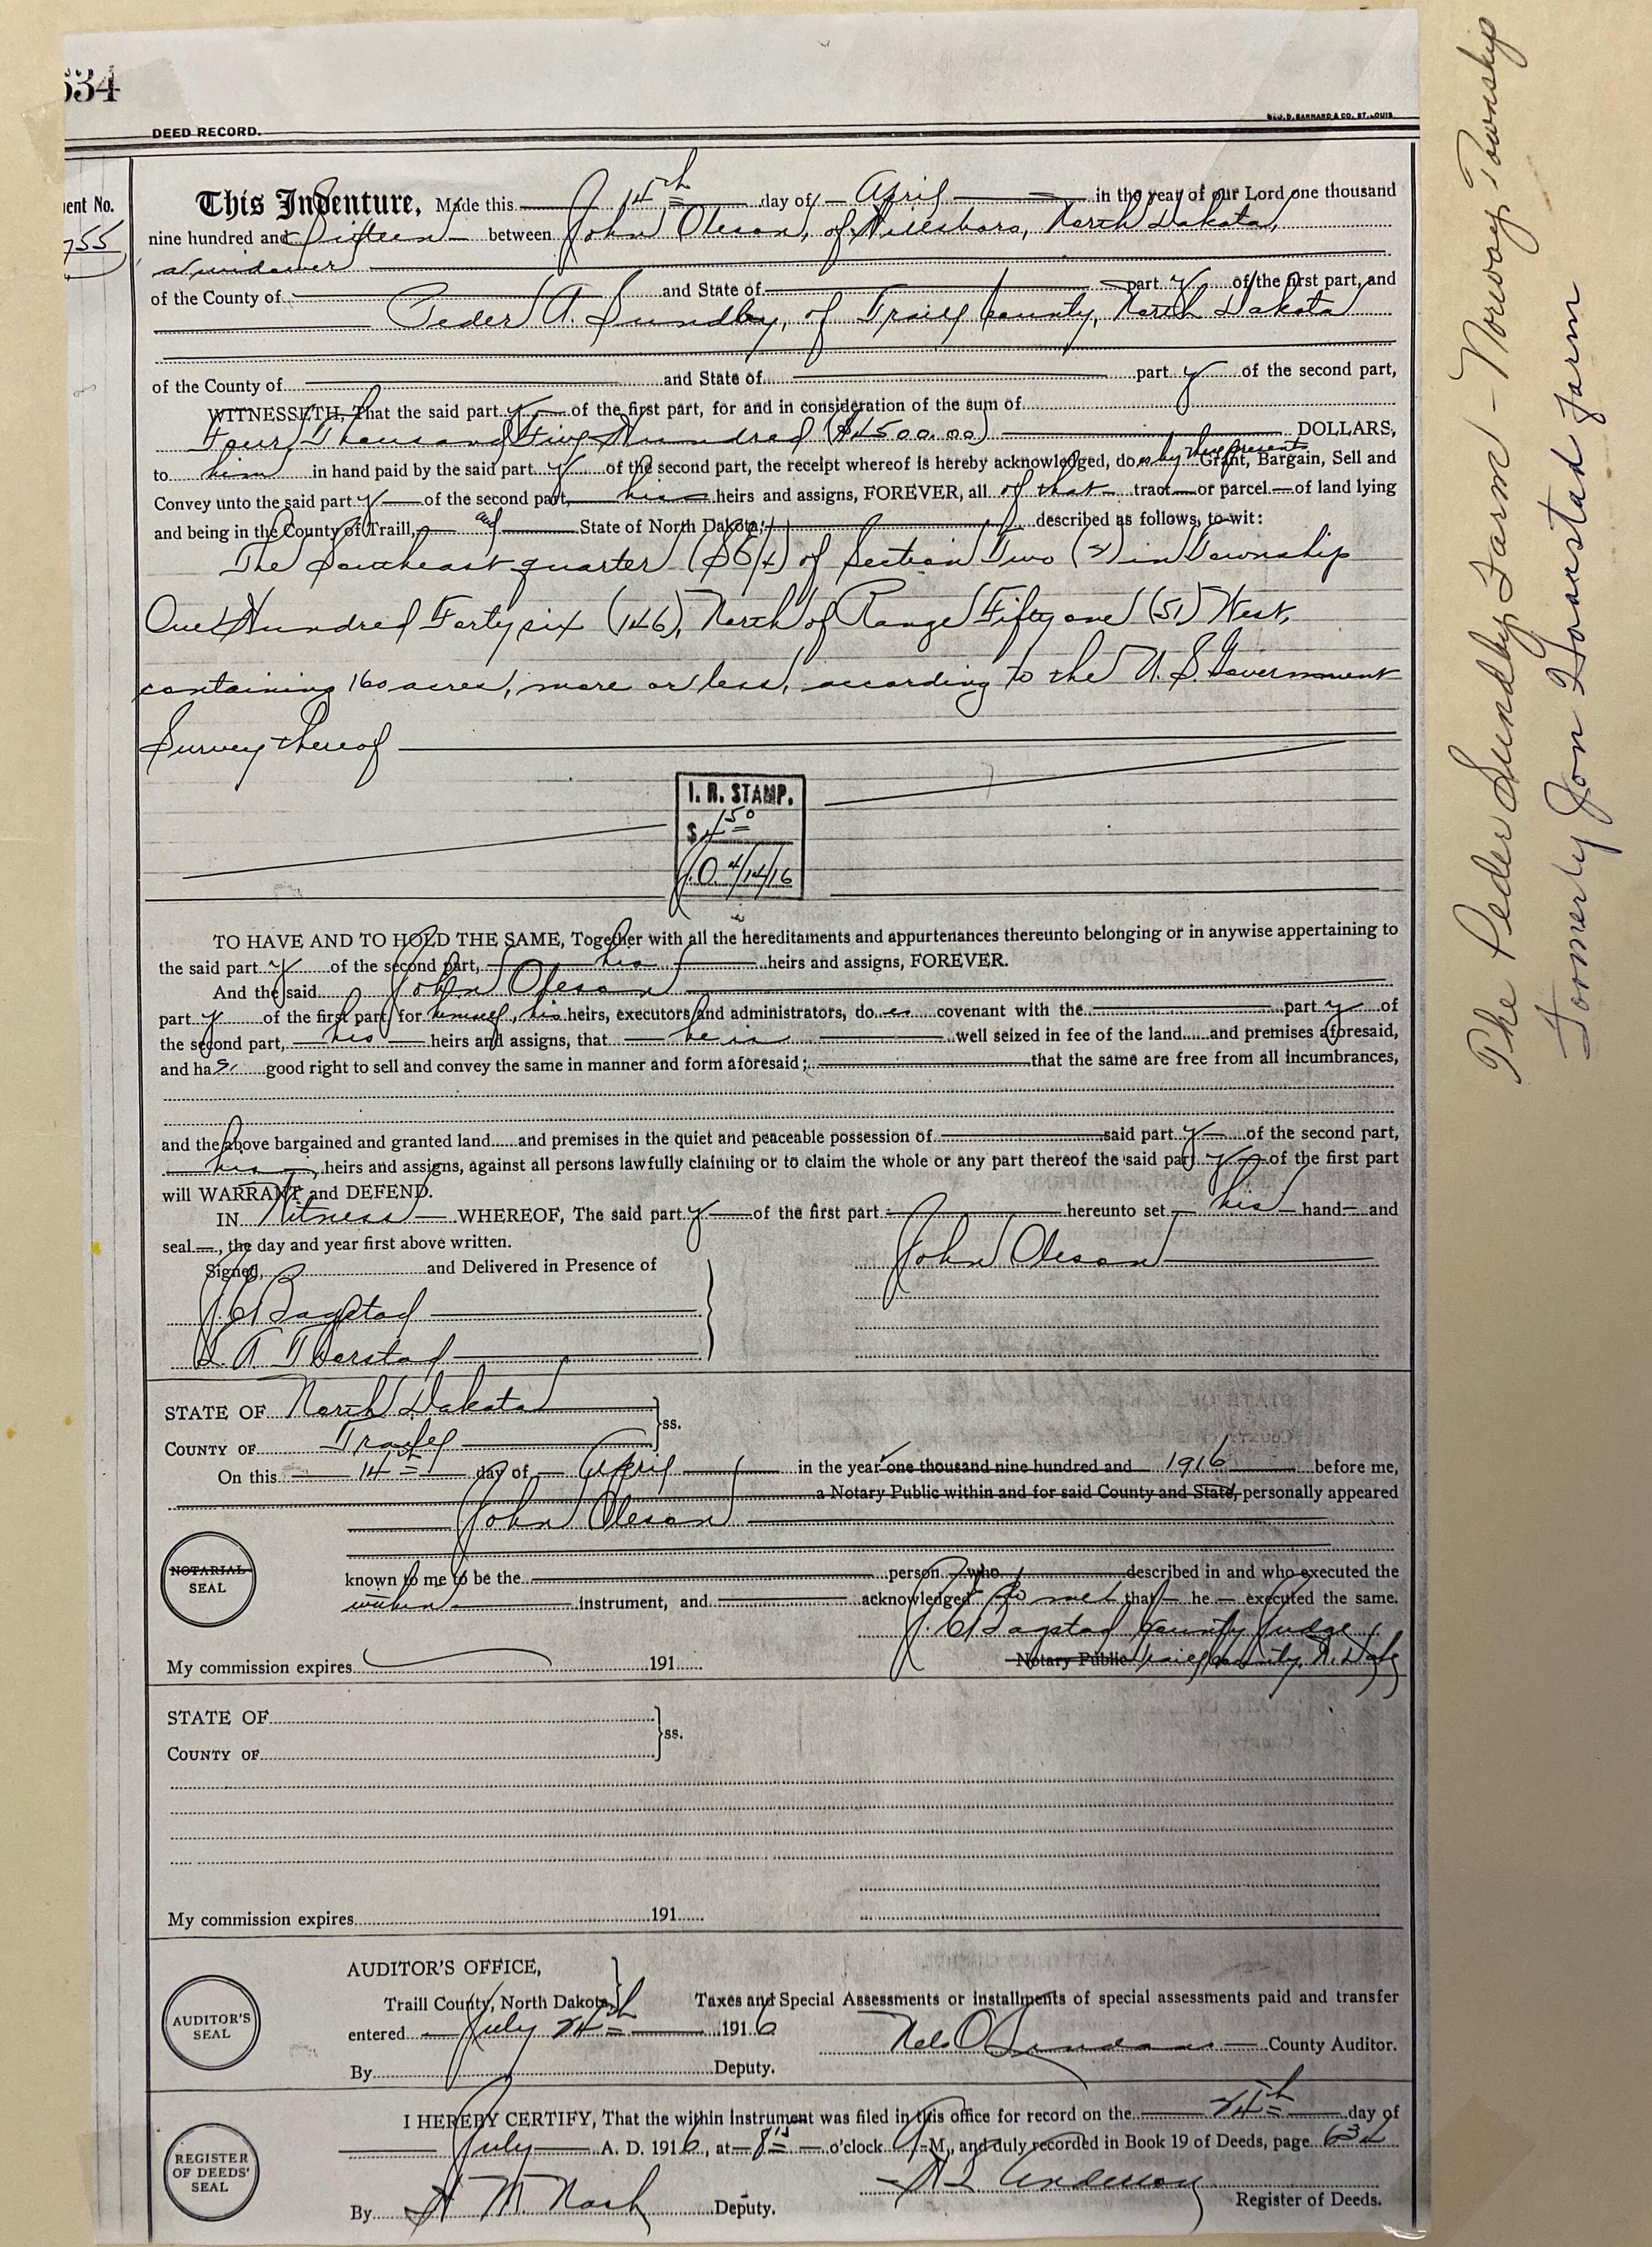 634
DEED RECORD.
GEO. D. BARNARD & CO. ST. LOUIS
ent No.
755
This Indenture, Made this 14th day of April in the year of our Lord one thousand
nine hundred and fifteen between John Oleson, of Hillsboro, North Dakota,
a widower
of the County of and State of party of the first part, and
Peder A. Sundby, of Traill County, North Dakota
of the County of and State of party of the second part,
WITNESSETH, That the said party of the first part, for and in consideration of the sum of
Four Thousand Five Hundred ($4500.00) DOLLARS,
to him in hand paid by the said party of the second part, the receipt whereof is hereby acknowledged, does by these presents Grant, Bargain, Sell and
Convey unto the said party of the second part, his heirs and assigns, FOREVER, all of that tract or parcel of land lying
and being in the County of Traill, and State of North Dakota, described as follows, to-wit:
The Southeast quarter (SE/4) of Section Two (2) in Township
One Hundred Forty six (146), North of Range Fifty one (51) West,
containing 160 acres, more or less, according to the U. S. Government
Survey thereof
I. R. STAMP.
$4 50
J.O. 4/14/16
TO HAVE AND TO HOLD THE SAME, Together with all the hereditaments and appurtenances thereunto belonging or in anywise appertaining to
the said party of the second part, his heirs and assigns, FOREVER.
And the said John Oleson
party of the first part, for himself, his heirs, executors and administrators, does covenant with the party of
the second part, his heirs and assigns, that he is well seized in fee of the land and premises aforesaid,
and has good right to sell and convey the same in manner and form aforesaid; that the same are free from all incumbrances,
and the above bargained and granted land and premises in the quiet and peaceable possession of said party of the second part,
his heirs and assigns, against all persons lawfully claiming or to claim the whole or any part thereof the said party of the first part
will WARRANT and DEFEND.
IN Witness WHEREOF, The said party of the first part hereunto set his hand and
seal, the day and year first above written.
Signed, and Delivered in Presence of
John Oleson
J. E. Bagstad
L. A. Thorstad
STATE OF North Dakota
ss.
COUNTY OF Traill
On this 14th day of April in the year one thousand nine hundred and 1916 before me,
a Notary Public within and for said County and State, personally appeared
John Oleson
NOTARIAL SEAL
known to me to be the person who described in and who executed the
within instrument, and acknowledged to me that he executed the same.
J. E. Bagstad County Judge
My commission expires 191 Notary Public Traill County, N. Dak
STATE OF
ss.
COUNTY OF
My commission expires 191
AUDITOR'S OFFICE,
AUDITOR'S SEAL
Traill County, North Dakota, Taxes and Special Assessments or installments of special assessments paid and transfer
entered July 24th 1916 Nels O. County Auditor.
By Deputy.
I HEREBY CERTIFY, That the within Instrument was filed in this office for record on the 24th day of
July A. D. 1916, at 8 o'clock A M., and duly recorded in Book 19 of Deeds, page
REGISTER OF DEEDS' SEAL
Anderson
By H M. Nash Deputy. Register of Deeds.
The Peder Sundby Farm - Norway Township
Formerly Jon Haarstad farm